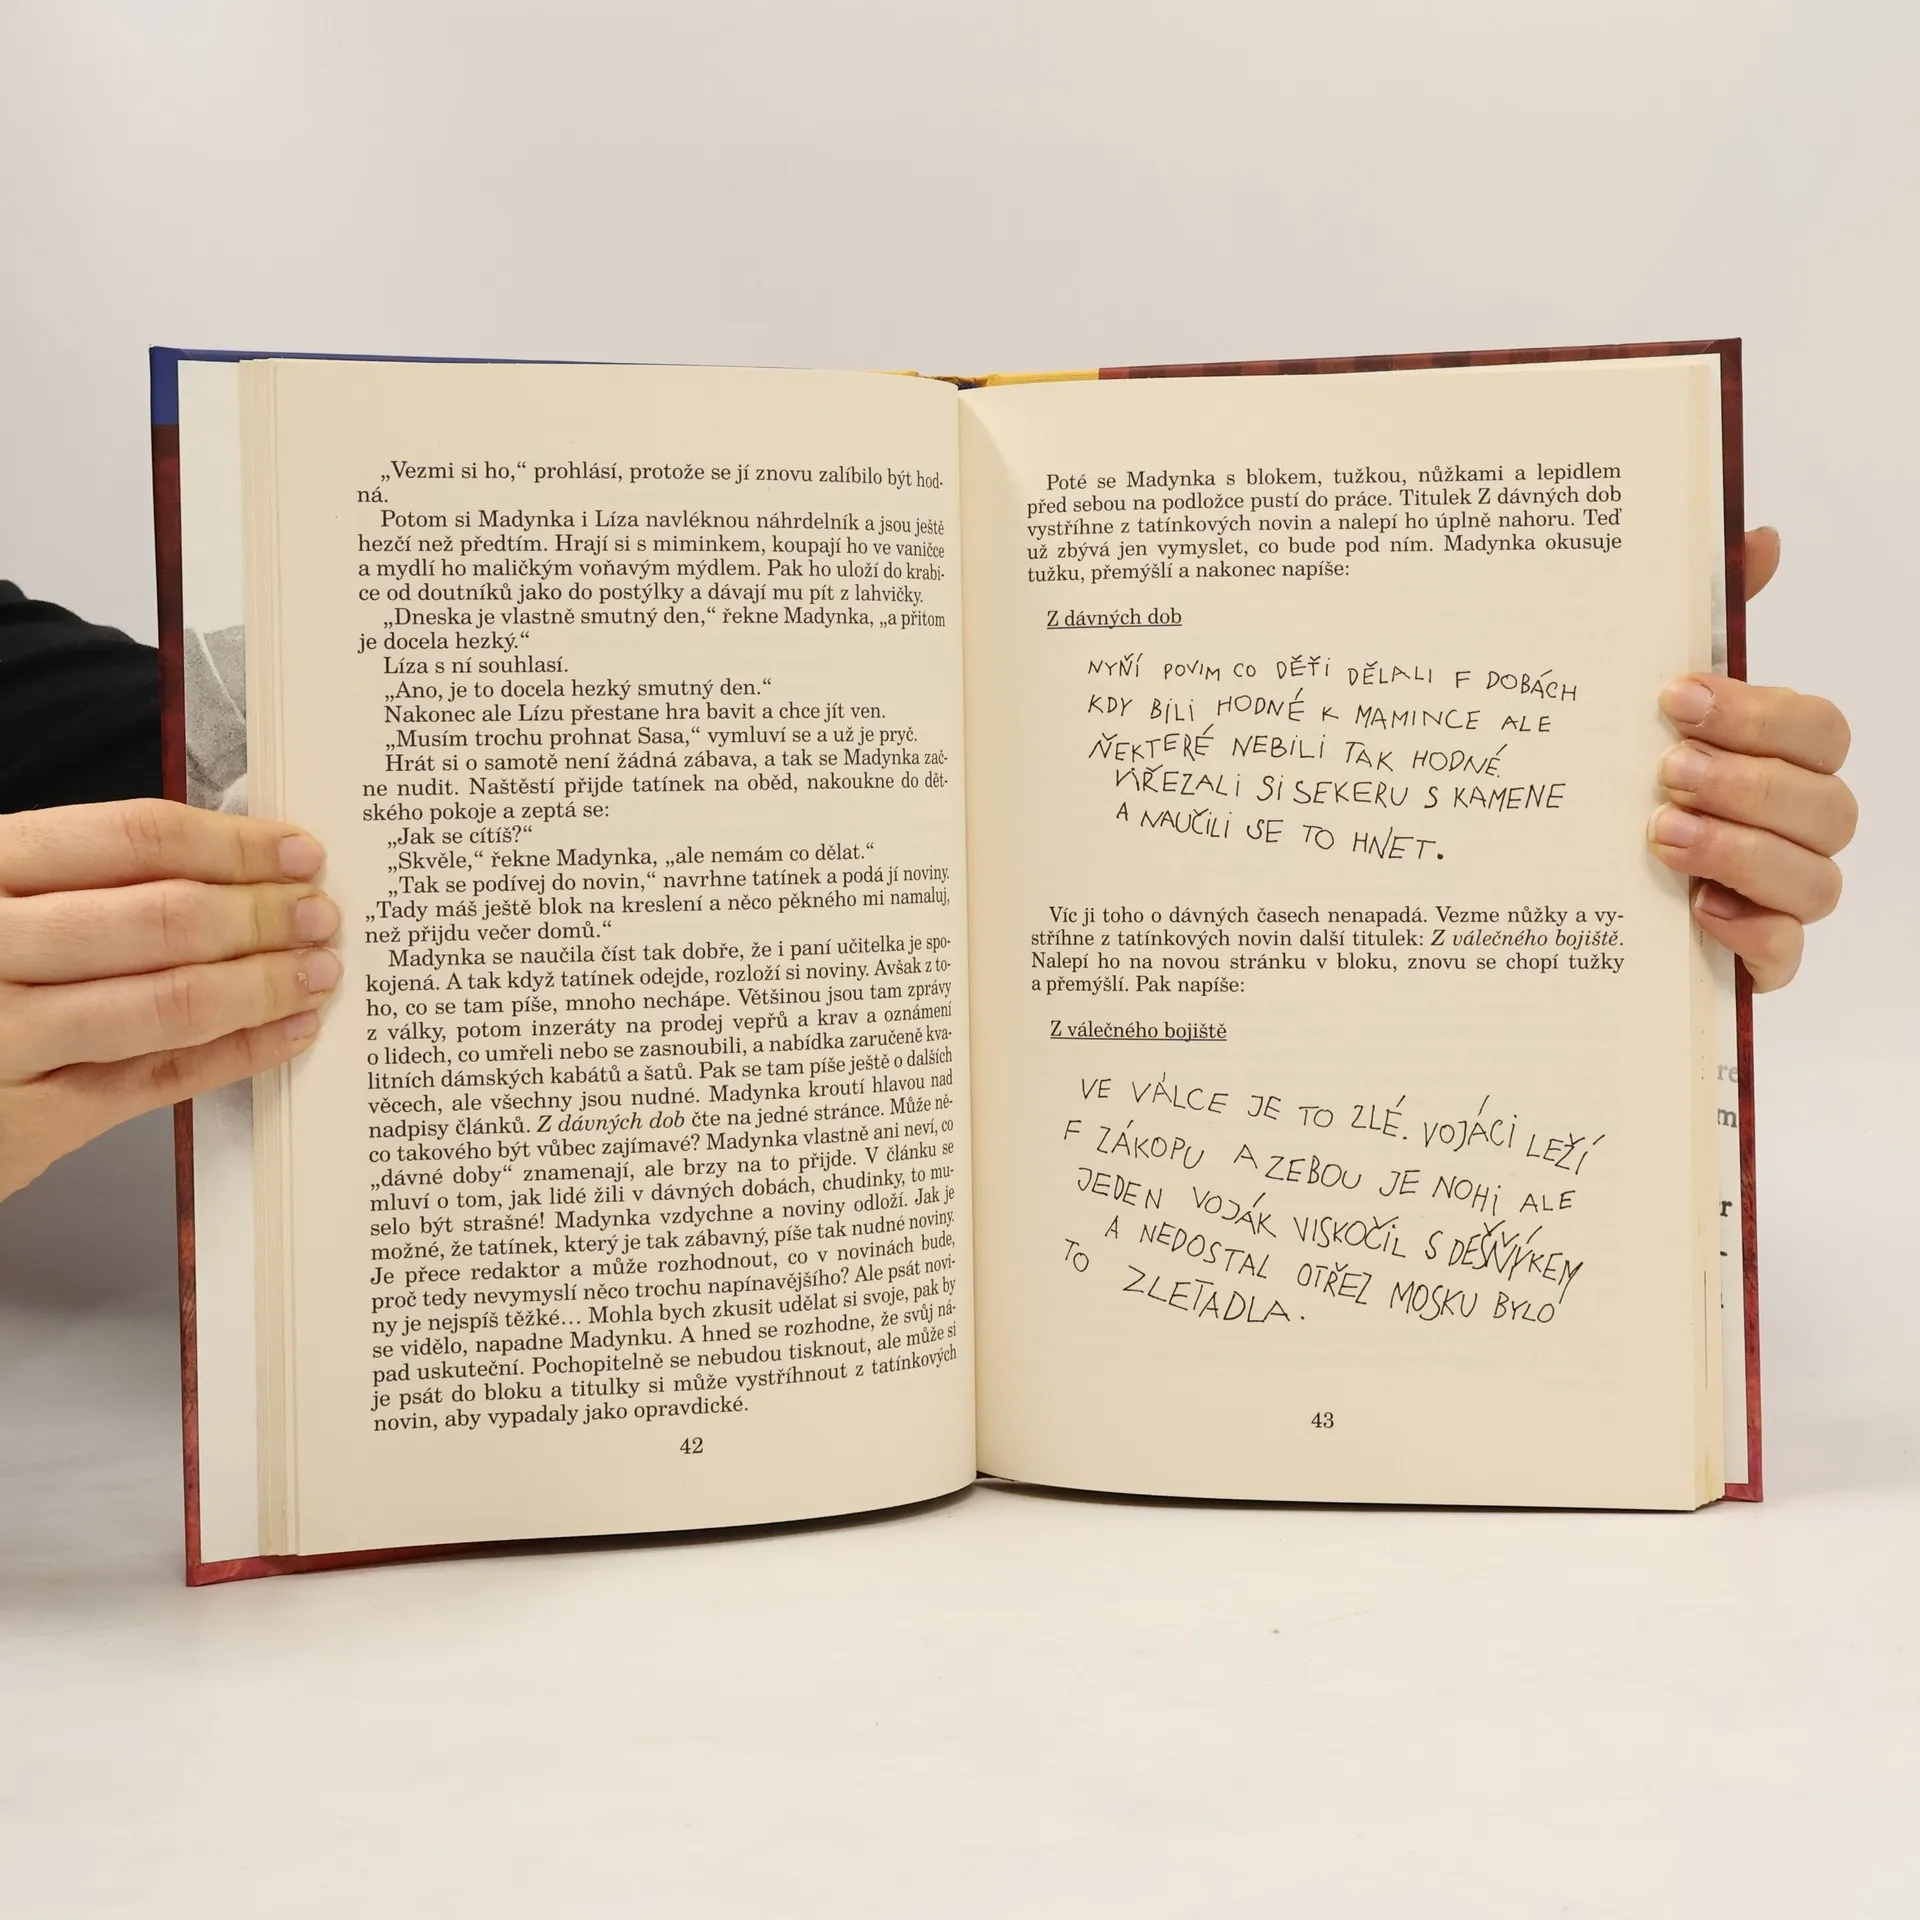 „Vezmi si ho,“ prohlásí, protože se jí znovu zalíbilo být hod-
ná.
Potom si Madynka i Líza navléknou náhrdelník a jsou ještě
hezčí než předtím. Hrají si s miminkem, koupají ho ve vaničce
a mydlí ho maličkým voňavým mýdlem. Pak ho uloží do krabi-
ce od doutníků jako do postýlky a dávají mu pít z lahvičky.
„Dneska je vlastně smutný den,“ řekne Madynka, „a přitom
je docela hezký.“
Líza s ní souhlasí.
„Ano, je to docela hezký smutný den.“
Nakonec ale Lízu přestane hra bavit a chce jít ven.
„Musím trochu prohnat Sasa,“ vymluví se a už je pryč.
Hrát si o samotě není žádná zábava, a tak se Madynka zač-
ne nudit. Naštěstí přijde tatínek na oběd, nakoukne do dět-
ského pokoje a zeptá se:
„Jak se cítíš?“
„Skvěle,“ řekne Madynka, „ale nemám co dělat.“
„Tak se podívej do novin,“ navrhne tatínek a podá jí noviny.
„Tady máš ještě blok na kreslení a něco pěkného mi namaluj,
než přijdu večer domů.“
Madynka se naučila číst tak dobře, že i paní učitelka je spo-
kojená. A tak když tatínek odejde, rozloží si noviny. Avšak z to-
ho, co se tam píše, mnoho nechápe. Většinou jsou tam zprávy
z války, potom inzeráty na prodej vepřů a krav a oznámení
o lidech, co umřeli nebo se zasnoubili, a nabídka zaručeně kva-
litních dámských kabátů a šatů. Pak se tam píše ještě o dalších
věcech, ale všechny jsou nudné. Madynka kroutí hlavou nad
nadpisy článků. Z dávných dob čte na jedné stránce. Může ně-
co takového být vůbec zajímavé? Madynka vlastně ani neví, co
„dávné doby“ znamenají, ale brzy na to přijde. V článku se
mluví o tom, jak lidé žili v dávných dobách, chudinky, to mu-
selo být strašné! Madynka vzdychne a noviny odloží. Jak je
možné, že tatínek, který je tak zábavný, píše tak nudné noviny.
Je přece redaktor a může rozhodnout, co v novinách bude,
proč tedy nevymyslí něco trochu napínavějšího? Ale psát novi-
ny je nejspíš těžké... Mohla bych zkusit udělat si svoje, pak by
se vidělo, napadne Madynku. A hned se rozhodne, že svůj ná-
pad uskuteční. Pochopitelně se nebudou tisknout, ale může si
je psát do bloku a titulky si může vystříhnout z tatínkových
novin, aby vypadaly jako opravdické.
42
Poté se Madynka s blokem, tužkou, nůžkami a lepidlem
před sebou na podložce pustí do práce. Titulek Z dávných dob
vystříhne z tatínkových novin a nalepí ho úplně nahoru. Teď
už zbývá jen vymyslet, co bude pod ním. Madynka okusuje
tužku, přemýšlí a nakonec napíše:
Z dávných dob
NYŇÍ POVIM CO DĚŤI DĚLALI F DOBÁCH
KDY BILI HODNÉ K MAMINCE ALE
ŇEKTERÉ NEBILI TAK HODNÉ.
VIŘEZALI SI SEKERU S KAMENE
A NAUČILI SE TO HNET.
Víc ji toho o dávných časech nenapadá. Vezme nůžky a vy-
stříhne z tatínkových novin další titulek: Z válečného bojiště.
Nalepí ho na novou stránku v bloku, znovu se chopí tužky
a přemýšlí. Pak napíše:
Z válečného bojiště
VE VÁLCE JE TO ZLÉ. VOJÁCI LEŽÍ
F ZÁKOPU A ZEBOU JE NOHI ALE
JEDEN VOJÁK VISKOČIL S DEŠŇÝKEM
A NEDOSTAL OTŘEZ MOSKU BYLO
TO ZLEŤADLA.
43
re
m
r